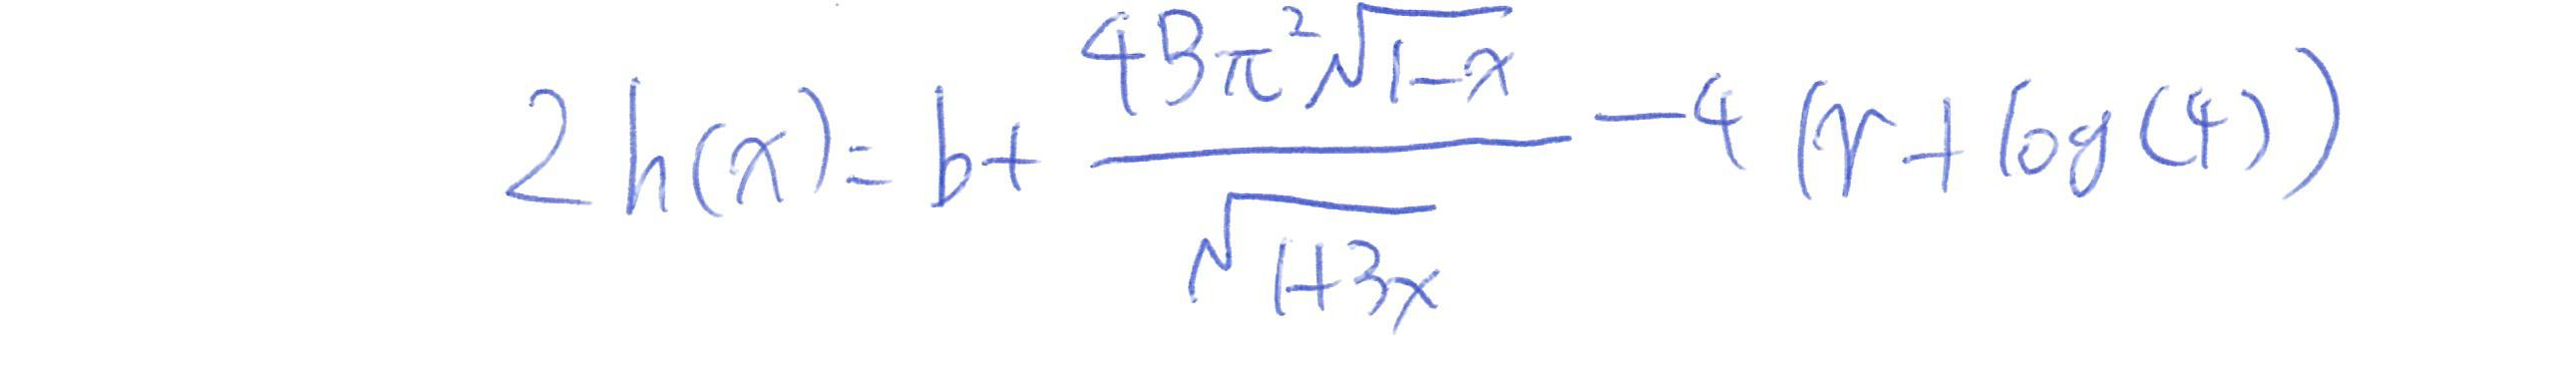 2h(x)=b+\frac{4Bπ^2\sqrt{1-x}}{\sqrt{1+3x}}-4(r+log(4))